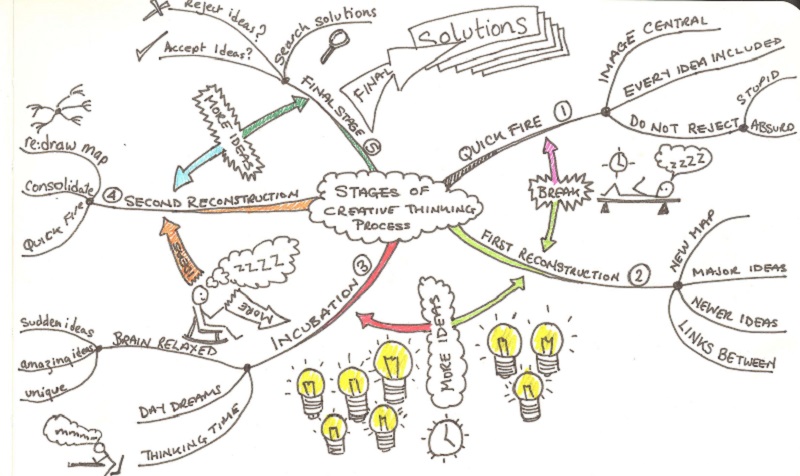 STAGES OF
CREATIVE THINKING
PROCESS
QUICK FIRE 1
IMAGE CENTRAL
EVERY IDEA INCLUDED
DO NOT REJECT
STUPID
ABSURD
BREAK
ZZZZ
FIRST RECONSTRUCTION 2
NEW MAP
MAJOR IDEAS
NEWER IDEAS
LINKS BETWEEN
MORE IDEAS
INCUBATION 3
BRAIN RELAXED
sudden ideas
amazing ideas
unique
DAY DREAMS
THINKING TIME
mmm
ZZZZ
MORE
IDEAS
4 SECOND RECONSTRUCTION
re:draw map
Consolidate
QUICK FIRE
MORE IDEAS
FINAL STAGE 5
Reject ideas?
Accept Ideas?
Search solutions
FINAL
Solutions